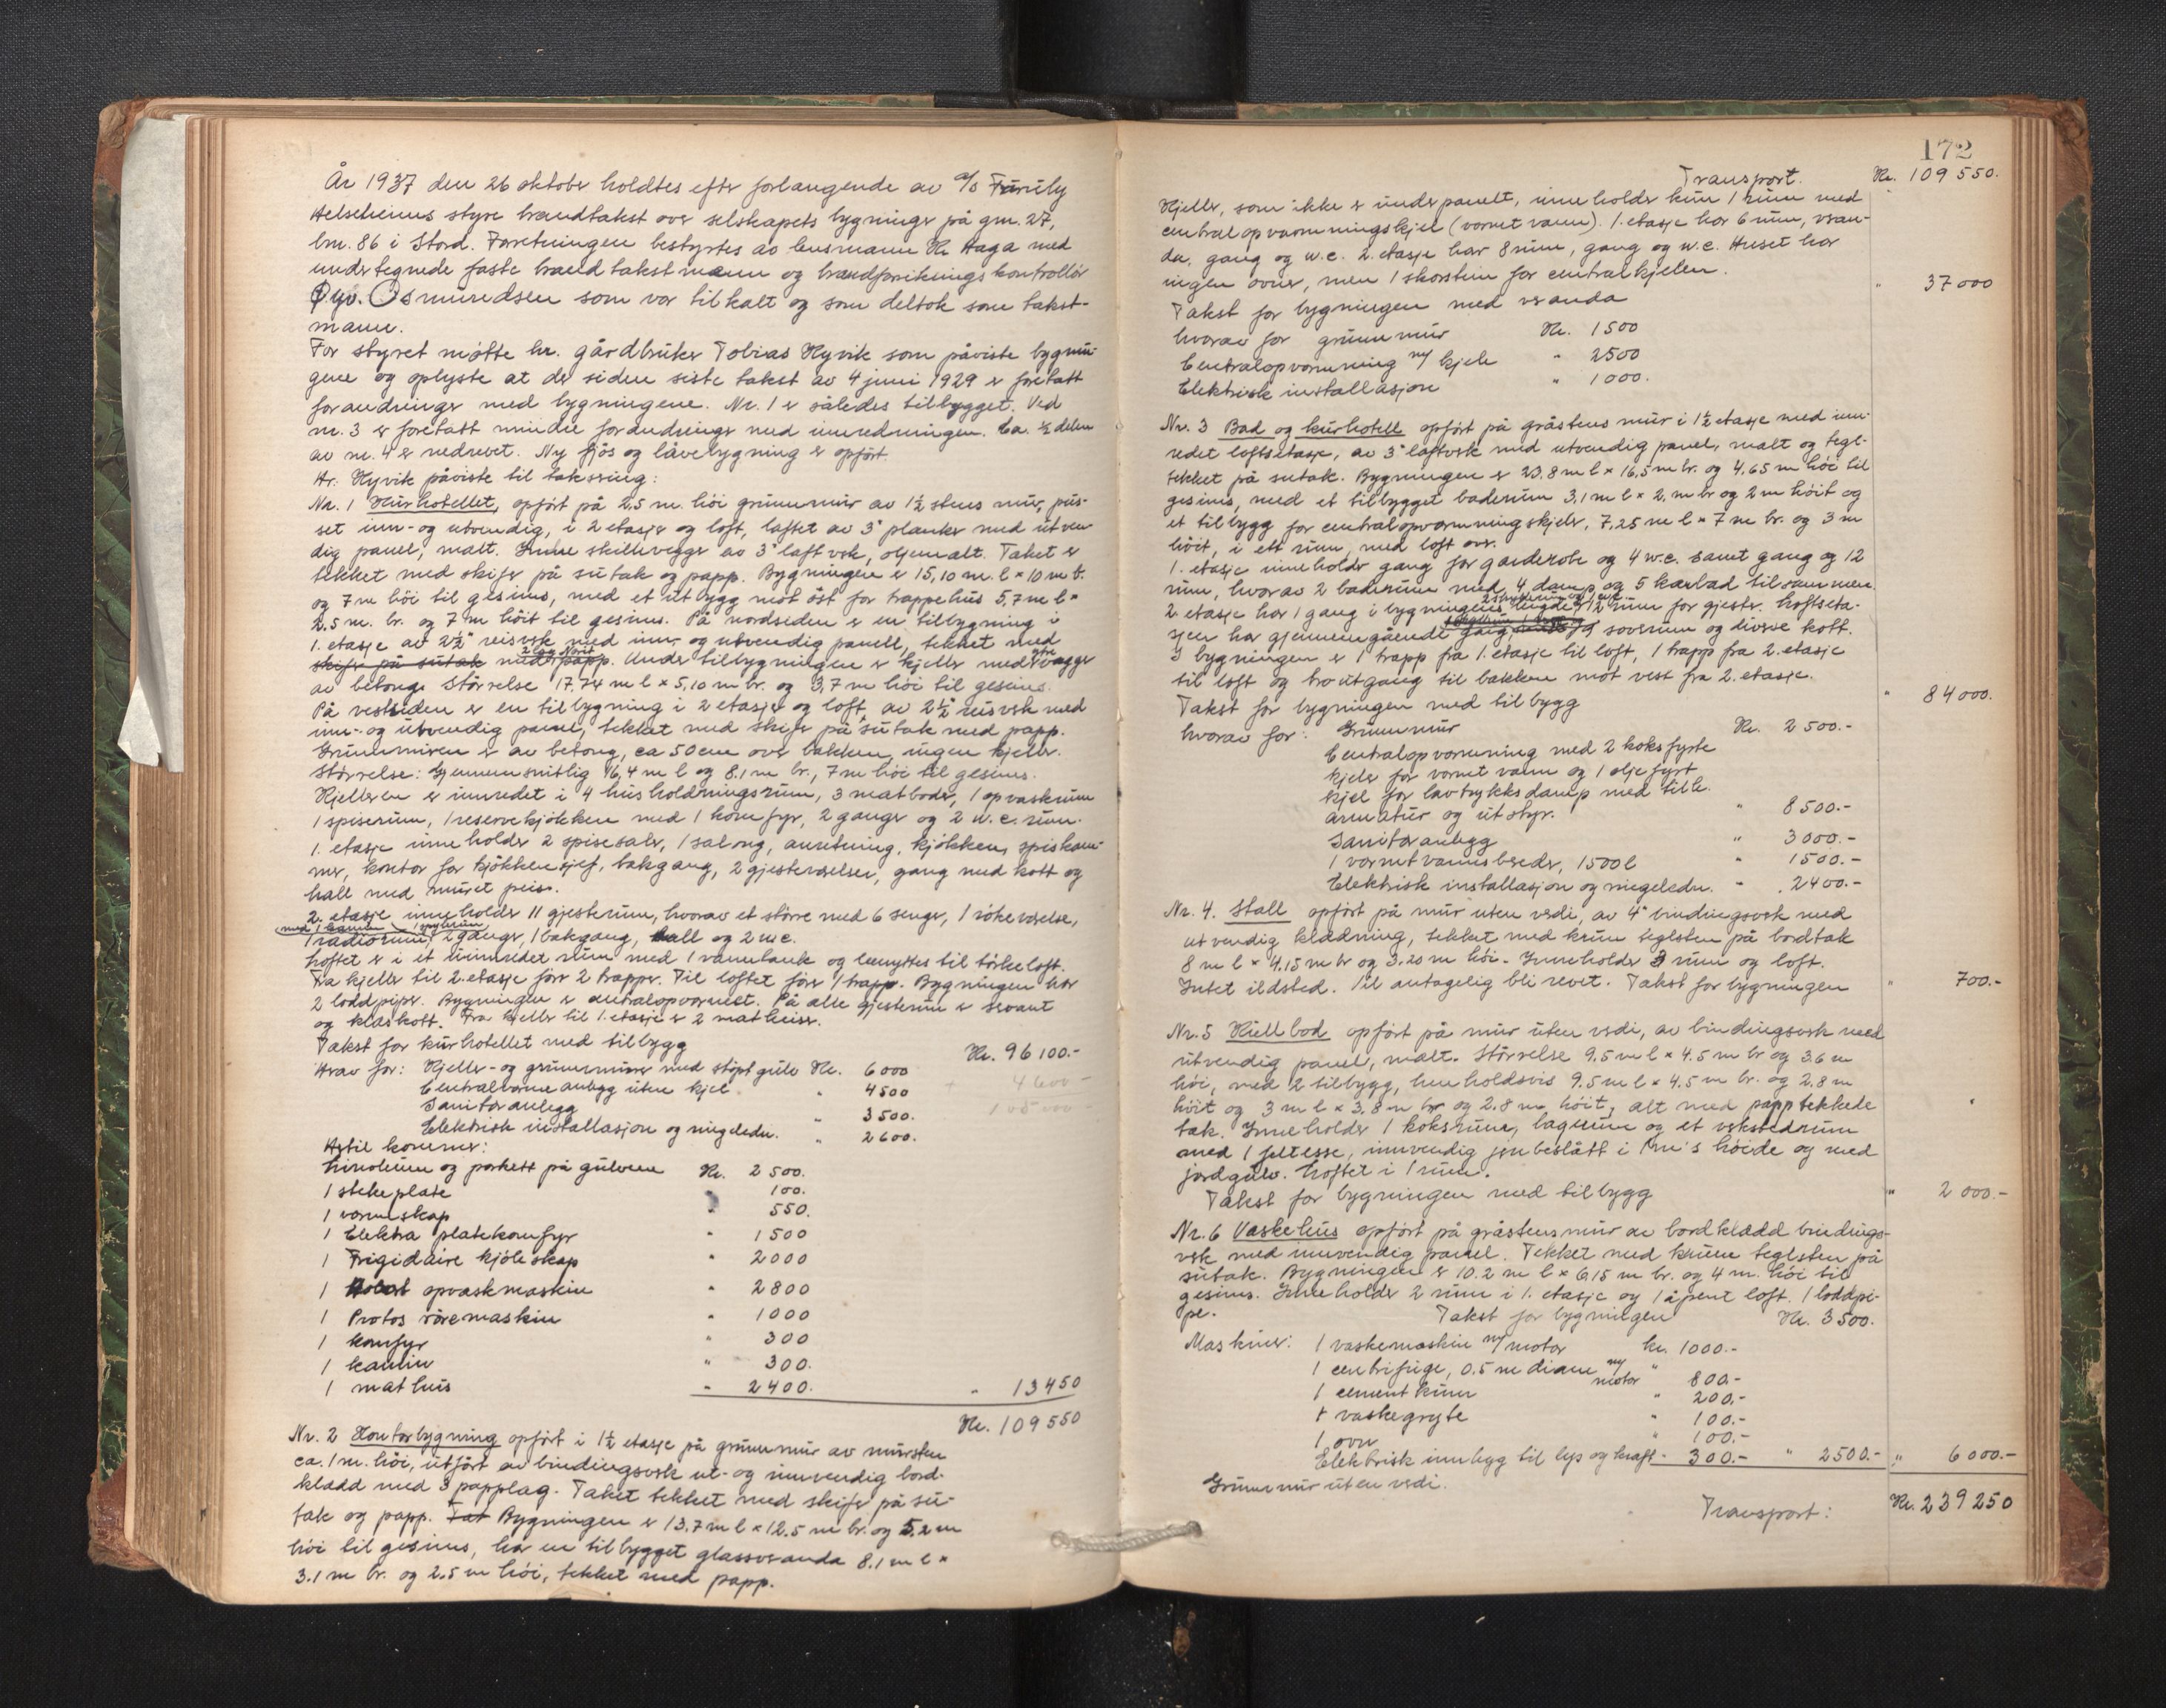 År 1937 den 26 oktober holdtes efter forlangende av a/s Furuly
Helseheims styre brandtakst over selskapets bygninger på gnr. 27,
bnr. 86 i Stord. Forretningen bestyrtes av lensmann Kr Haga med
undertegnede faste brandtakstmann og brandforsikringskontrollör
Øyv. Osmundsen som var tilkalt og som deltok som takst-
mann.
For styret møtte hr. gårdbruker Tobias Kyvik som påviste bygnin-
gene og oplyste at der siden siste takst av 4 juni 1929 er foretatt
forandringer med bygningene. Nr. 1 er således tilbygget. Ved
nr. 3 er foretatt mindre forandringer med innredningen. Ca. ½ delen
av nr. 4 er nedrevet. Ny fjös og låvebygning er opført.
Hr. Kyvik påviste til taksering:
Nr. 1 Kurhotellet, opført på 2,5 m. höi grunnmur av 1½ stens mur, pus-
set inn- og utvendig, i 2 etasjer og loft, laftet av 3" planker med utven-
dig panel, malt. Indre skillevegger av 3" laftverk, oljemalt. Taket er
tekket med skifer på sutak og papp. Bygningen er 15,10 m. l × 10 m b.
og 7 m höi til gesims, med et utbygg mot öst for trappehus 5,7 m l ×
2.5 m. br. og 7 m höit til gesims. På nordsiden er en tilbygning i
1. etasje av 2½" reisverk med inn- og utvendig panell, tekket med
skifer på sutak med 2 lag Norit papp. Under tilbygningen er kjeller med ytre vegger
av betong. Störrelse 17.74 m l × 5,10 m br. og 3,7 m höi til gesims.
På vestsiden er en tilbygning i 2 etasjer og loft, av 2½" reisverk med
inn- og utvendig panel, tekket med skifer på sutak med papp.
Grunnmuren er av betong, ca 50 cm over bakken, ingen kjeller.
Störrelse: Gjennemsnitlig 16,4 m l og 8.1 m br., 7 m höi til gesims.
Kjelleren er innredet i 4 husholdningsrum, 3 matboder, 1 opvaskrum
1 spiserum, 1 reservekjökken med 1 komfyr, 2 ganger og 2 w.c. rum.
1. etasje inneholder 2 spisesaler, 1 salong, anretning, kjökken, spiskam-
mer, kontor for kjökkensjef, bakgang, 2 gjesteværelser, gang med kott og
hall med muret peis.
2. etasje inneholder 11 gjesterum, hvorav et större med 6 senger, 1 rökeværelse,
med 1 kamin
1 radiorum, 2 ganger, 1 bakgang, hall og 2 w.c.
Loftet er i et uinnredet rum med 1 vanntank og benyttes til törkeloft.
Fra kjeller til 2. etasje förer 2 trapper. Til loftet förer 1 trapp. Bygningen har
2 loddpiper. Bygningen er centralopvarmet. På alle gjesterum er servant
og klæskott. Fra kjeller til 1. etasje er 2 matheiser.
Takst for kurhotellet med tilbygg Kr. 96 100.-
Herav for: Kjeller- og grunnmurer med stöpt gulv Kr. 6000
Centralvarmeanlegg uten kjel " 4500
Sanitæranlegg " 3500.
Elektrisk installasjon og ringeledn. " 2600.
4600 -
105000
Hertil kommer:
Linoleum og parkett på gulvene Kr. 2 500.
1 stekeplate " 100.
1 varmeskap " 550.
1 Elektra platekomfyr " 1500
1 Frigidaire kjöleskap " 2000
1 Hobart opvaskmaskin " 2800
1 Protos röremaskin " 1000
1 komfyr " 300
1 kamin " 300.
1 matheis " 2400. " 13450
Kr. 109550
Nr. 2 Kontorbygning opfört i 1½ etasje på grunnmur av mursten
ca. 1 m. höi, utfört av bindingsverk ut- og innvendig bord-
kledd med 3 papplag. Taket tekket med skifer på su-
tak og papp. Tak Bygningen er 13.7 m l × 12.5 m br. og 5.2 m
höi til gesims, har en tilbygget glassveranda 8.1 m l ×
3.1 m br. og 2.5 m höi, tekket med papp.
172
Transport. Kr. 109550.
Kjeller, som ikke er underpanelt, inneholder kun 1 rum med
centralopvarmningskjel (varmt vann). 1. etasje har 6 rum, veran-
da, gang og w.c. 2. etasje har 8 rum, gang og w.c. Huset har
ingen ovner, men 1 skorstein for centralkjelen.
Takst for bygningen med veranda " 37000
hvorav for grunnmur Kr. 1500
Centralopvarmning m/ kjele " 2500
Elektrisk installasjon " 1000.
Nr. 3 Bad og kurhotell opfört på gråstens mur i 1½ etasje med inn-
redet loftsetasje, av 3" laftverk med utvendig panel, malt og tegl-
tekket på sutak. Bygningen er 23,8 m l × 16,5 m br. og 4,65 m höi til
gesims, med et tilbygget baderum 3,1 m l × 2, m br og 2 m höit og
et tilbygg for centralopvarmningskjeler, 7,25 m l × 7 m br. og 3 m
höit, i ett rum, med loft over.
1. etasje inneholder gang for garderobe og 4 w.c. samt gang og 12
rum, hvorav 2 baderum med 4 damp og 5 karbad tilsammen.
2 etasje har 1 gang i bygningens lengde, 12 rum for gjester. Loftseta-
sjen har gjennemgående gang 9 soverum og diverse kott.
I bygningen er 1 trapp fra 1. etasje til loft, 1 trapp fra 2. etasje
til loft og bro utgang til bakken mot vest fra 2. etasje.
Takst for bygningen med tilbygg " 84000.
hvorav for: Grunnmur Kr. 2500.-
Centralopvarmning med 2 koksfyrte
kjeler for varmt vann og 1 oljefyrt
kjel for lavtrykksdamp med tilh.
armatur og utstyr. " 8500.-
Sanitæranlegg " 3000.-
1 varmtvannsbereder, 1500 l " 1500.-
Elektrisk installasjon og ringeledn. " 2400.-
Nr. 4. Stall opfört på mur uten verdi, av 4" bindingsverk med
utvendig kledning, tekket med krum teglsten på bordtak
8 m l × 4.15 m br og 3.20 m höi. Inneholder 3 rum og loft.
Intet ildsted. Vil antagelig bli revet. Takst for bygningen " 700.-
Nr. 5 Kullbod opfört på mur uten verdi, av bindingsverk med
utvendig panel, malt. Störrelse 9.5 m l × 4.5 m br og 3.6 m
höi, med 2 tilbygg, henholdsvis 9.5 m l × 4.5 m br. og 2.8 m
höit og 3 m l × 3.8 m br og 2.8 m höit, alt med papptekkede
tak. Inneholder 1 koksrum, lagerum og et verkstedrum
med 1 feltesse, innvendig jernbeslått i 1 m's höide og med
jordgulv. Loftet i 1 rum.
Takst for bygningen med tilbygg " 2 000.-
Nr. 6 Vaskehus opfört på gråstensmur av bordkledd bindings-
verk med innvendig panel. Tekket med krum teglsten på
sutak. Bygningen er 10.2 m l × 6,15 m br. og 4 m. höi til
gesims. Inneholder 2 rum i 1. etasje og 1 åpent loft. 1 loddpi-
pe. Takst for bygningen Kr. 3500.
Maskiner: 1 vaskemaskin m/motor kr. 1000.-
1 centrifuge, 0.5 m diam m/motor " 800.-
1 cement kum " 200.-
1 vaskegryte " 100.-
1 ovn " 100.-
Elektrisk innlegg til lys og kraft - 300.- " 2500.- " 6000.-
Grunnmur uten verdi.
Transport: Kr. 239250